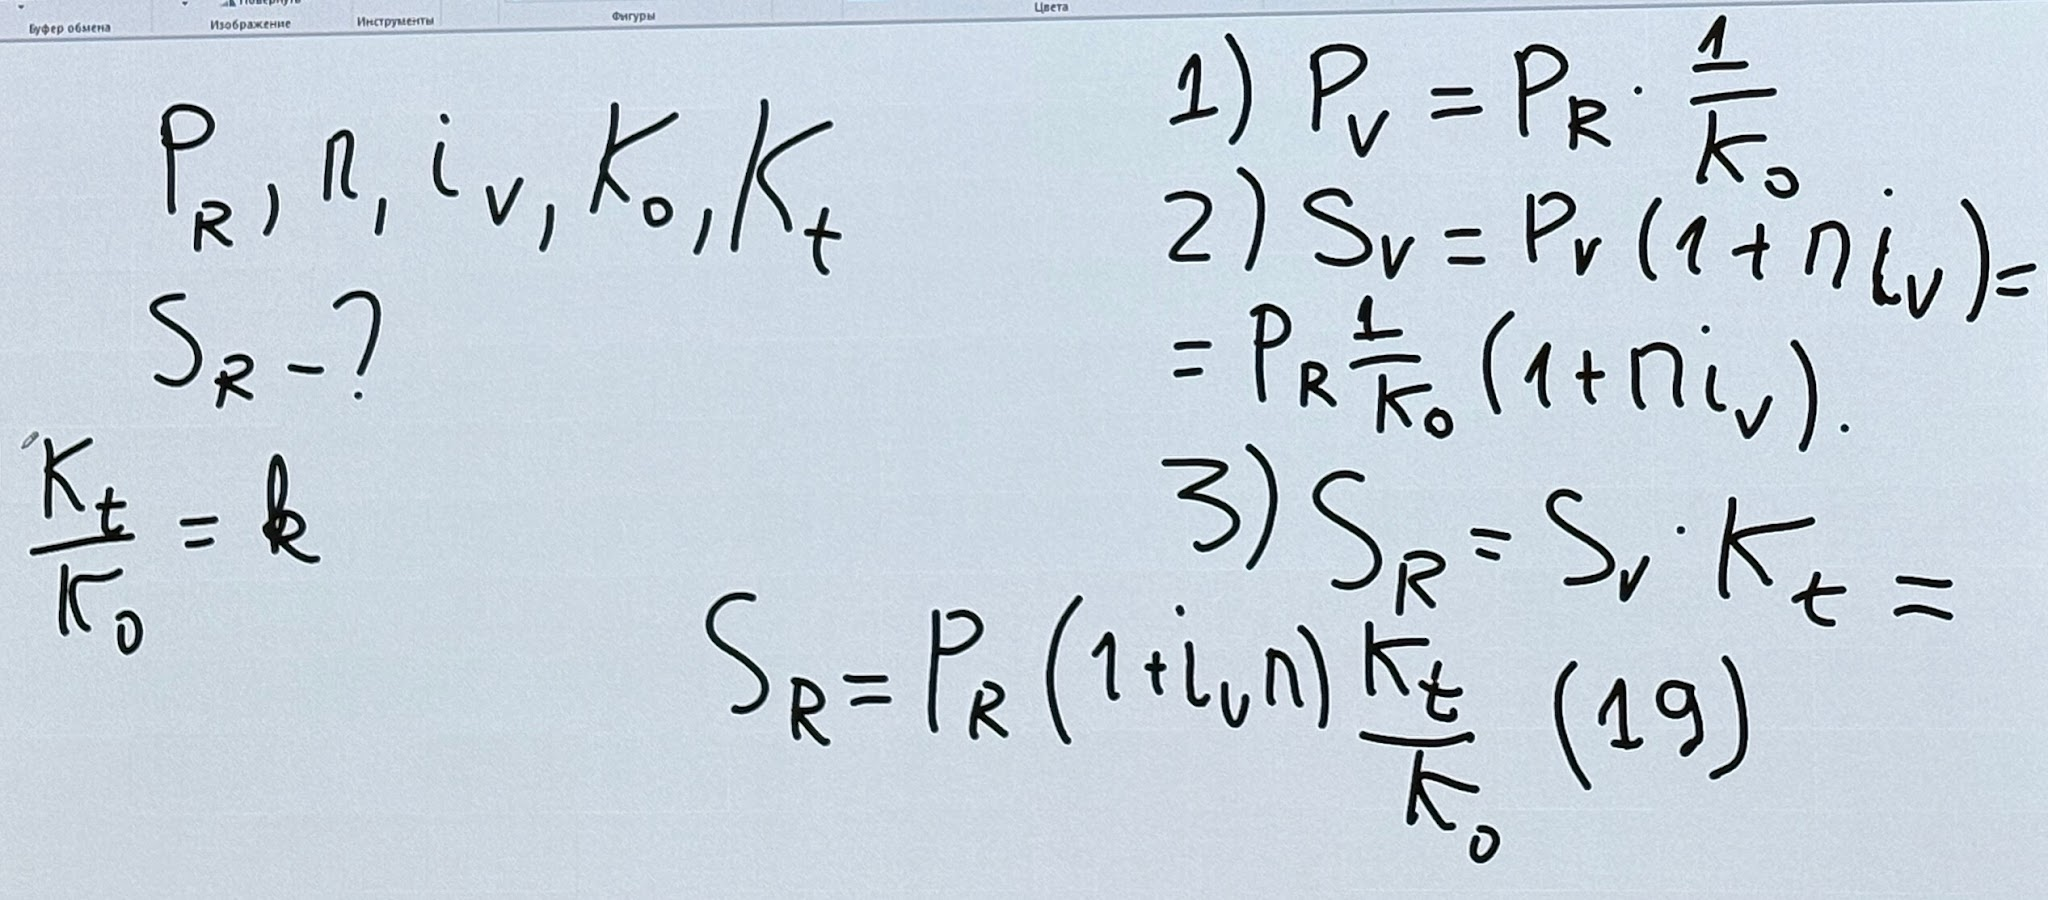 Буфер обмена
Изображение
Инструменты
Фигуры
Цвета
P_R, n, i_v, K_0, K_t
S_R - ?
K_t / K_0 = k
1) P_V = P_R · 1 / K_0
2) S_V = P_V (1 + n i_V) =
= P_R 1 / K_0 (1 + n i_V).
3) S_R = S_V · K_t =
S_R = P_R (1 + i_v n) K_t / K_0 (19)